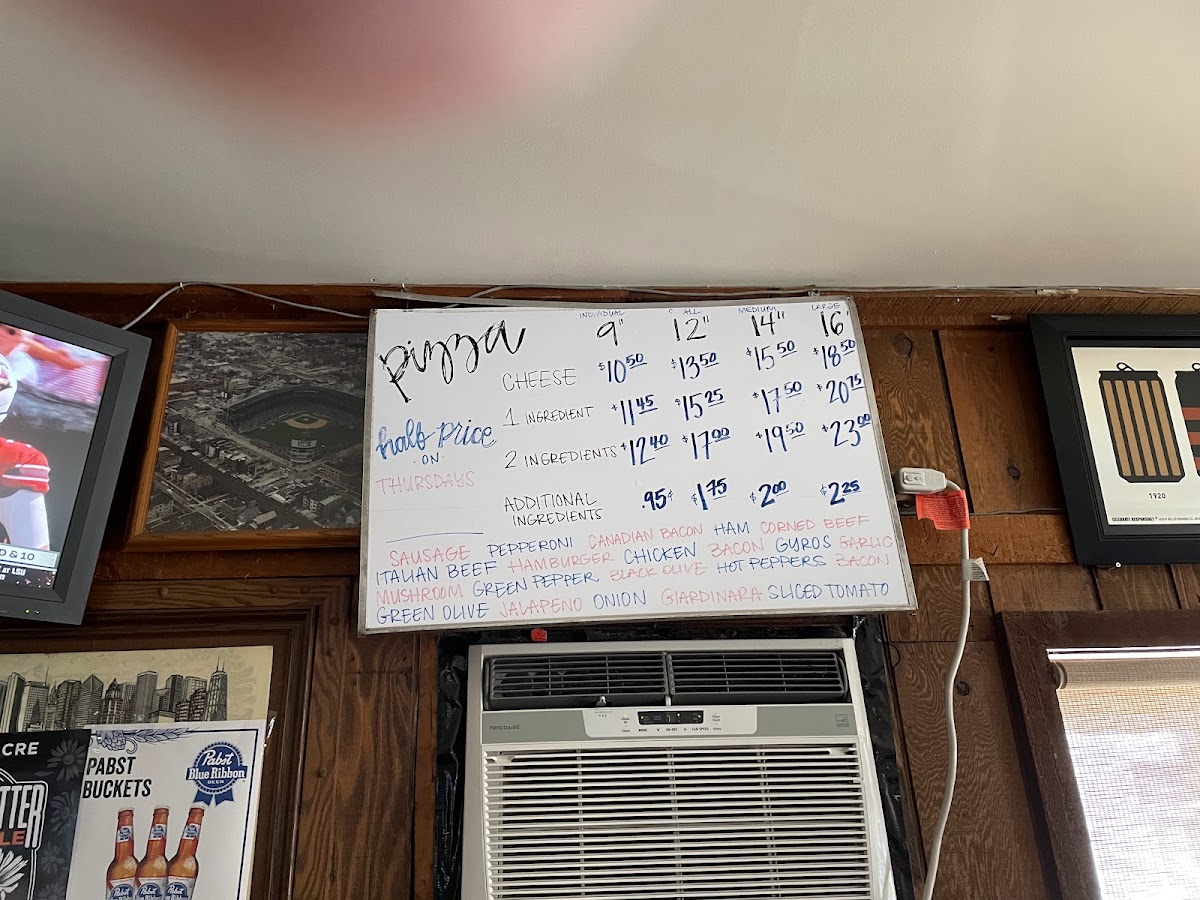 INDIVIDUAL MEDIUM LARGE
pizza 9" 12" 14" 16"
CHEESE $10.50 $13.50 $15.50 $18.50
1 INGREDIENT $11.45 $15.25 $17.50 $20.75
half price
ON
THURSDAYS
2 INGREDIENTS $12.40 $17.00 $19.50 $23.00
ADDITIONAL INGREDIENTS .95¢ $1.75 $2.00 $2.25
SAUSAGE PEPPERONI CANADIAN BACON HAM CORNED BEEF
ITALIAN BEEF HAMBURGER CHICKEN BACON GYROS GARLIC
MUSHROOM GREEN PEPPER BLACK OLIVE HOT PEPPERS BACON
GREEN OLIVE JALAPENO ONION GIARDINARA SLICED TOMATO
D & 10
AT LSU
CRE
TTER
LE
PABST
BUCKETS
Pabst
Blue Ribbon
BEER
FRIGIDAIRE
1920